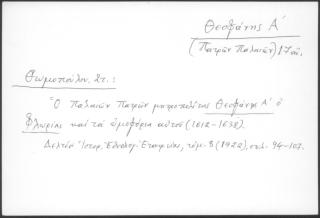 Θεοφάνης Α΄
(Πατρῶν Παλαιῶν) 17 αἰ.
Θωμοπούλου, Στ.:
"Ὁ Παλαιῶν Πατρῶν μητροπολίτης Θεοφάνης Α΄ ὁ
Φλωρίας καὶ τὰ ὠμοφόρια αὐτοῦ (1612-1638).
Δελτίον Ἱστορ. Ἐθνολογ. Ἑταιρείας, τόμ. 8 (1922), σελ. 94-107.